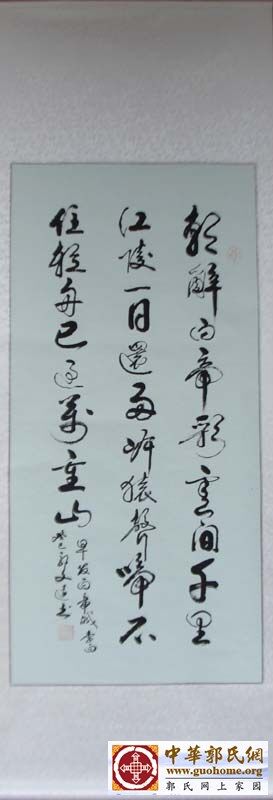 朝辭白帝彩雲間千里
江陵一日還兩岸猿聲啼不
住輕舟已過萬重山
早发白帝城 李白
癸巳
中華郭氏網
www.guohome.org
郭氏网上家园